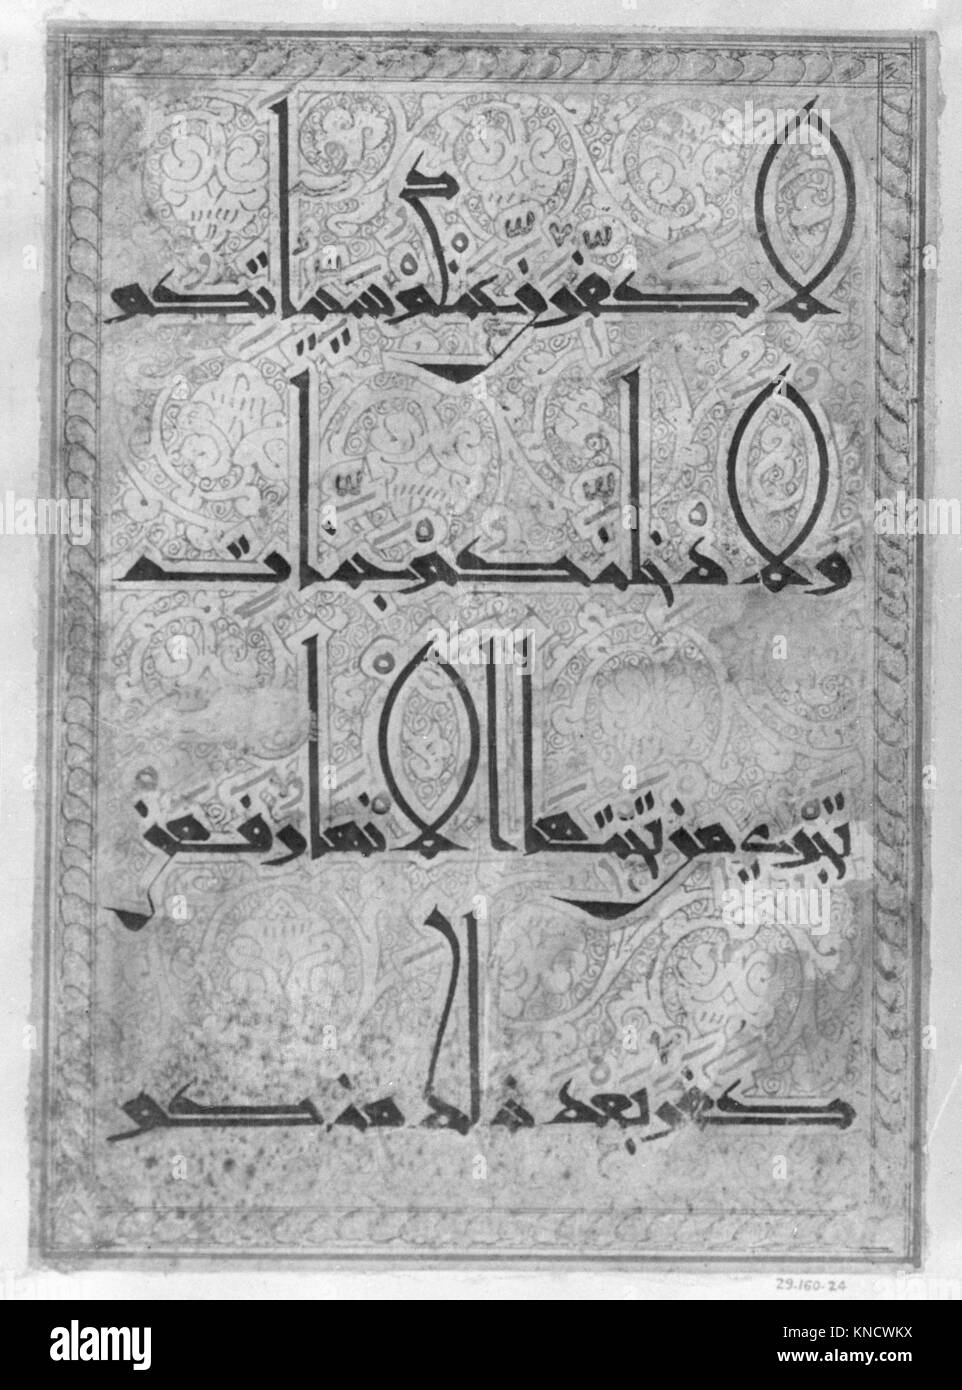 لَأُكَفِّرَنَّ عَنْكُمْ سَيِّئَاتِكُمْ
وَلَأُدْخِلَنَّكُمْ جَنَّاتٍ
تَجْرِي مِنْ تَحْتِهَا الْأَنْهَارُ فَمَنْ
كَفَرَ بَعْدَ ذَلِكَ مِنْكُمْ
29.160.24
alamy
Image ID: KNCWKX
www.alamy.com